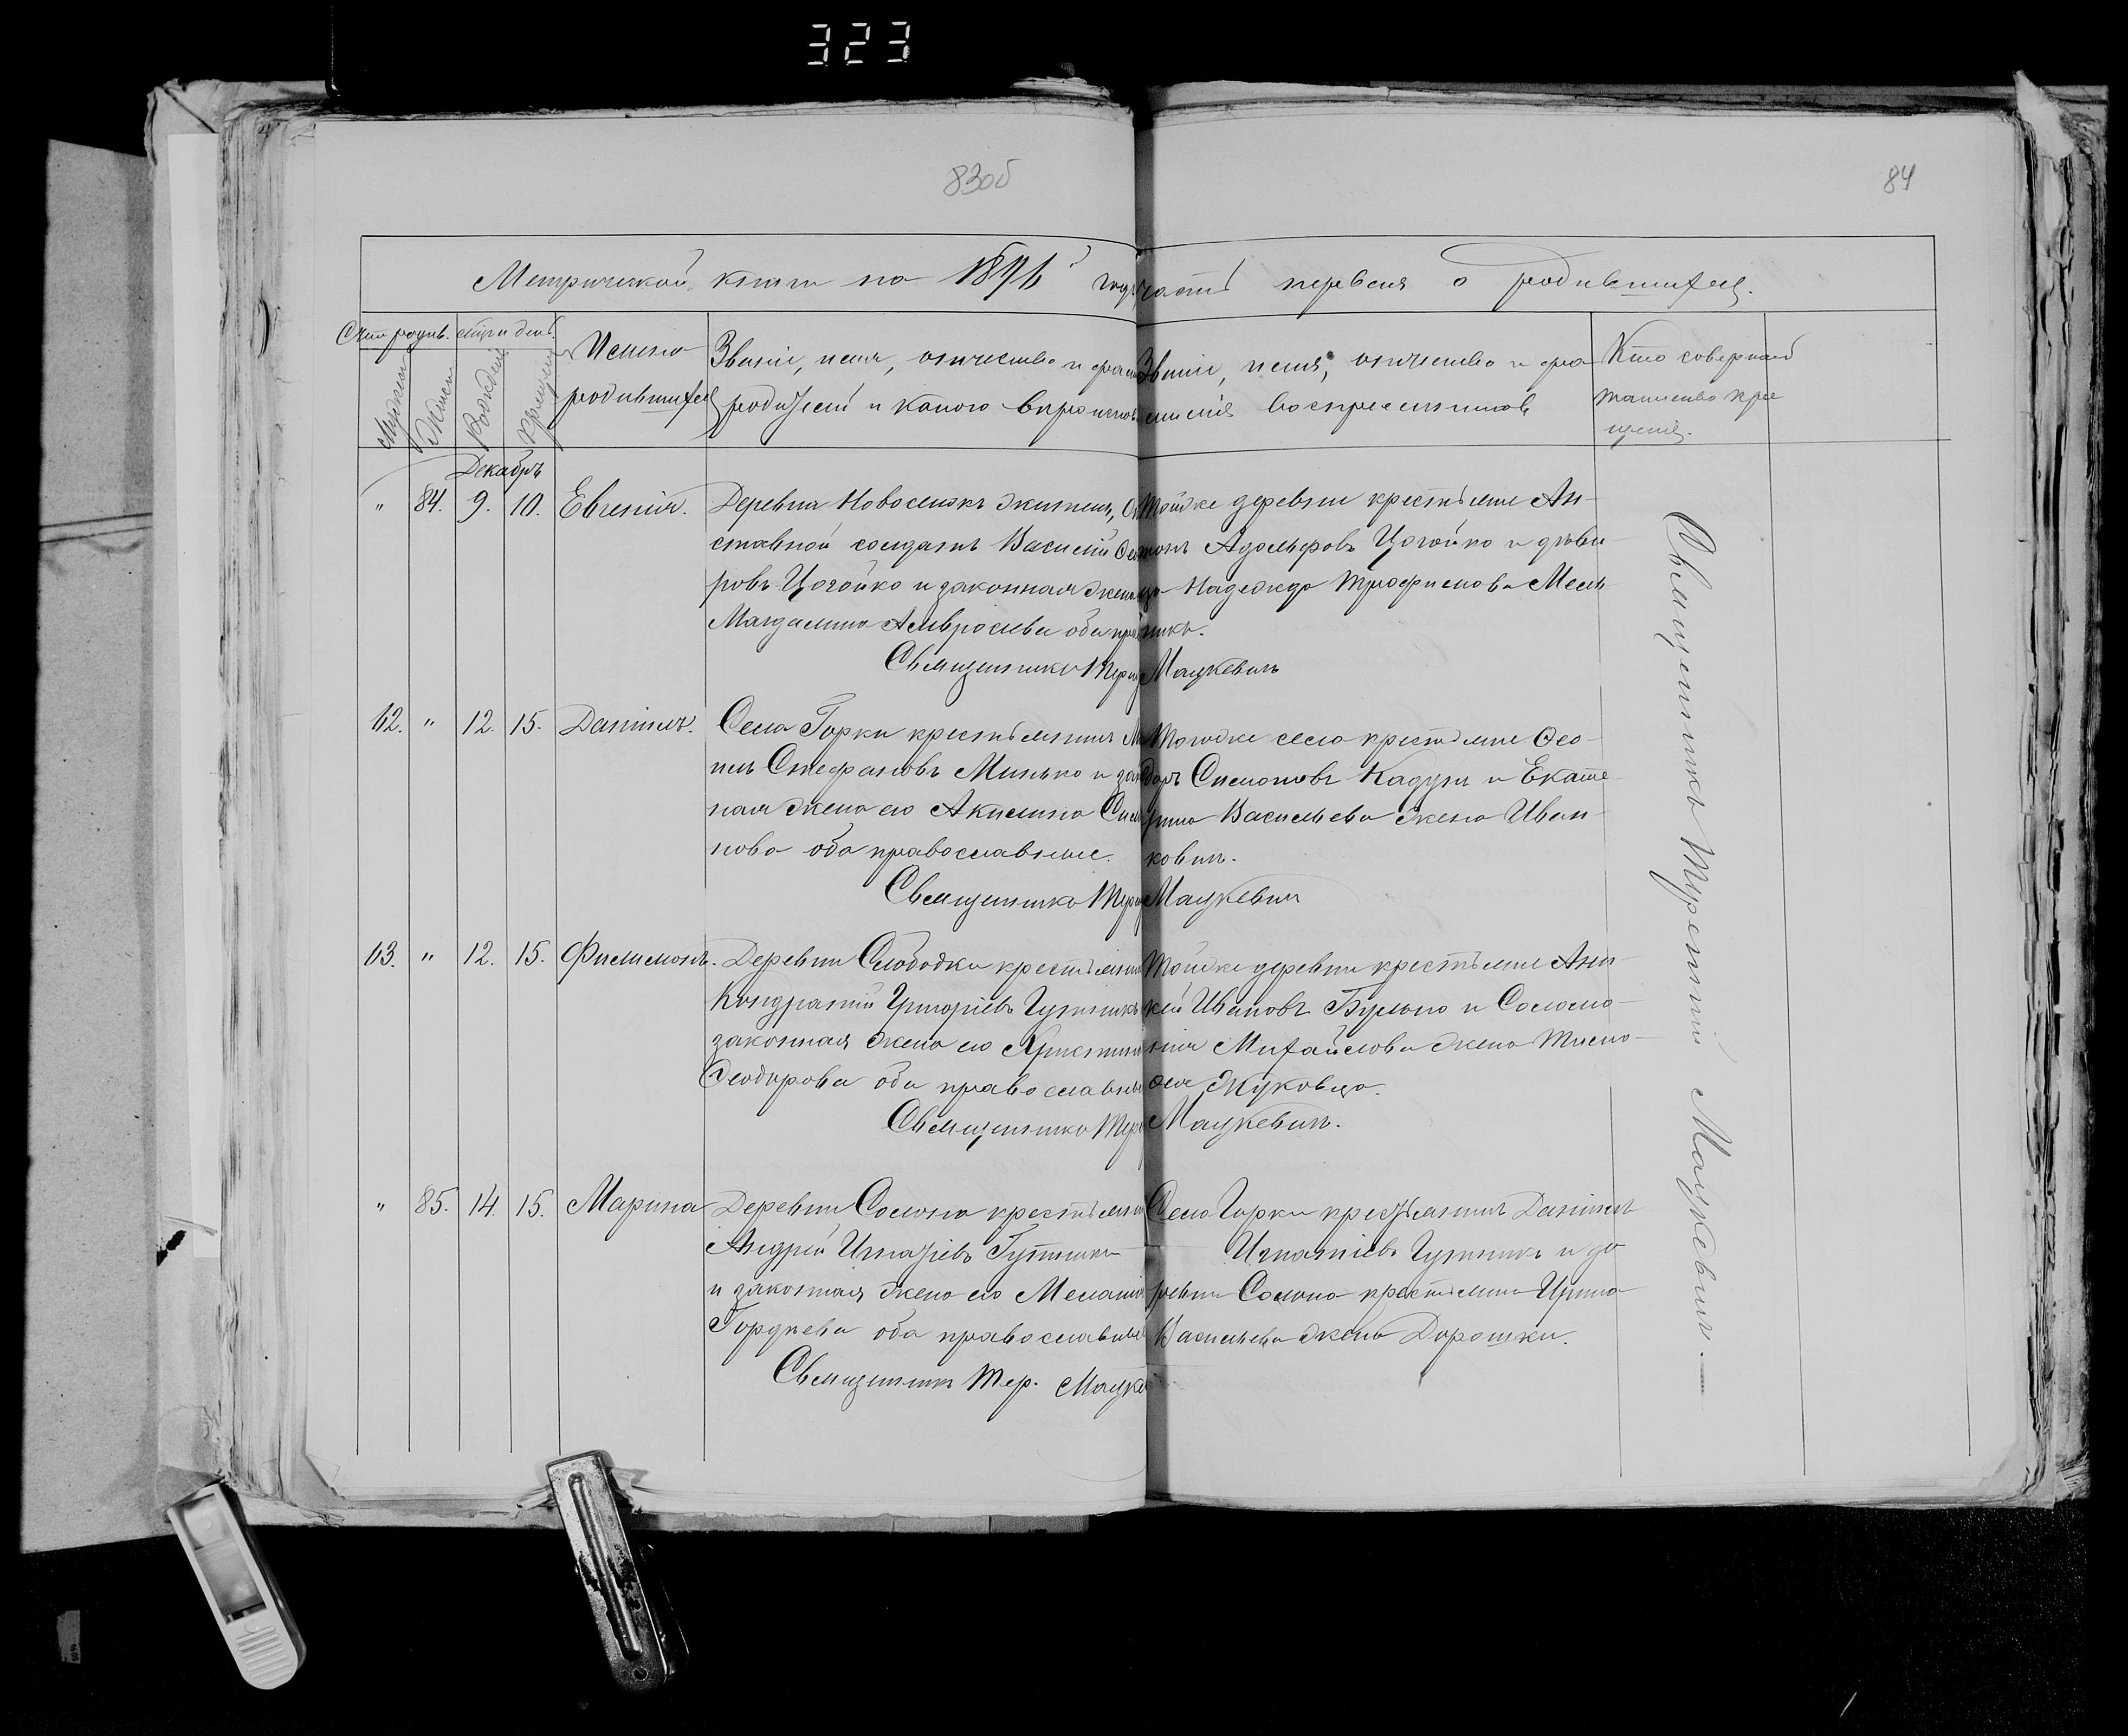 323
83об
84
Метрической книги на 1896 годъ часть первая о родившихся.
Счетъ родив. Мѣсяцъ и день.
Мужска
Женск
Рожденія
Крещенія
Имена родившихся
Званіе, имя, отчество и фами родителей и какого вѣроисповѣ
Званіе, имя, отчество и фа милія воспріемниковъ
Кто совершалъ таинство кре щенія.
Декабрь
" 84. 9. 10. Евгенія.
Деревни Новоселокъ житель, От
ставной солдатъ Василій Ѳео
ровъ Цогойко и законная жена
Магдалина Амвросіева оба пра
Священникъ Тер
Тойже деревни крестьяне Ан-
тонъ Адольфовъ Цогойко и дѣви-
ца Надежда Трофимова Мель
никъ.
Мацкевичъ
62. " 12. 15. Даніилъ.
Села Горки крестьянинъ
Стефановъ Минько и зак
ная жена его Акилина Сим
нова оба православные.
Священникъ Тер
Тогоже села крестьяне Ѳео-
доръ Симоновъ Кадунъ и Екате-
рина Васильева жена Иван-
ковичъ.
Мацкевичъ
63. " 12. 15. Филимонъ.
Деревни Слободки крестьянинъ
Кондратій Григоріевъ Гутникъ
законная жена его Христина
Ѳеодорова оба православные
Священникъ Тер
Тойже деревни крестьяне Ани-
кей Ивановъ Бульно и Соломо-
нія Михайлова жена Тимо-
ѳея Жуковца.
Мацкевичъ.
" 85. 14. 15. Марина
Деревни Сосьно крестьянинъ
Андрей Игнатіевъ Гутникъ
и законная жена его Меланія
Гордѣева оба православные
Священникъ Тер. Мацке
Села Горки крестьянинъ Даніилъ
Игнатіевъ Гутникъ и де
ревни Сосьно крестьянка Ирина
Васильева жена Дорошки.
Священникъ Терентій Мацкевичъ.